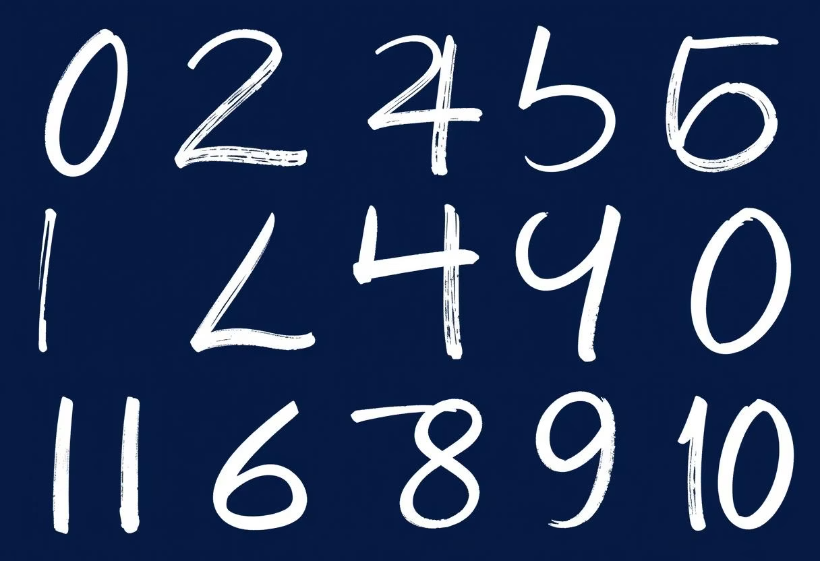 0 2 4 5 5
1 L 4 4 0
11 6 8 9 10